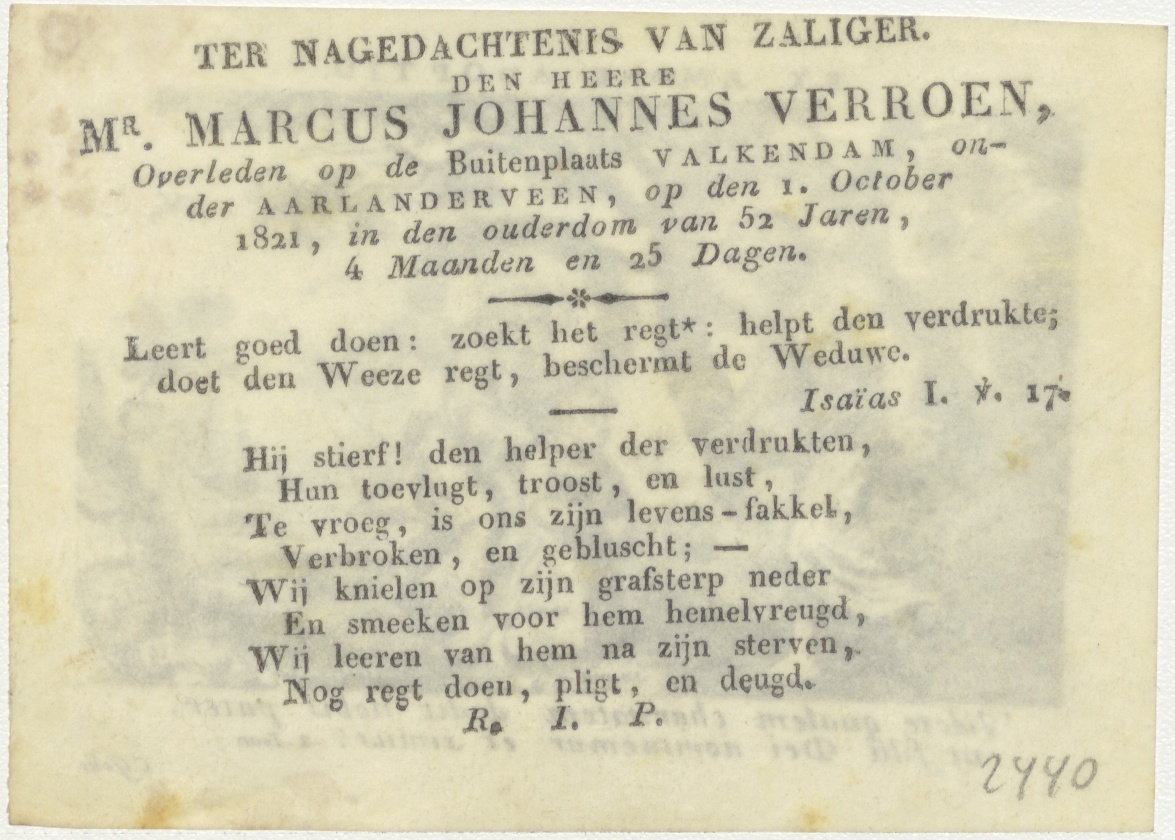 TER NAGEDACHTENIS VAN ZALIGER.
DEN HEERE
MR. MARCUS JOHANNES VERROEN,
Overleden op de Buitenplaats VALKENDAM, on-
der AARLANDERVEEN, op den 1. October
1821, in den ouderdom van 52 Jaren,
4 Maanden en 25 Dagen.
Leert goed doen: zoekt het regt*: helpt den verdrukte;
doet den Weeze regt, beschermt de Weduwe.
Isaïas I. ℣. 17.
Hij stierf! den helper der verdrukten,
Hun toevlugt, troost, en lust,
Te vroeg, is ons zijn levens-fakkel,
Verbroken, en gebluscht; —
Wij knielen op zijn grafsterp neder
En smeeken voor hem hemelvreugd,
Wij leeren van hem na zijn sterven,
Nog regt doen, pligt, en deugd.
R. I. P.
2440